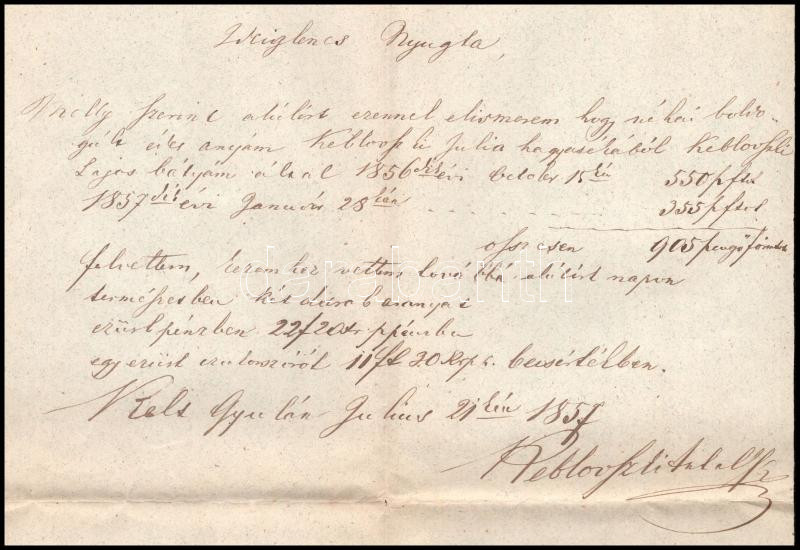 Ideiglenes Nyugta,
Melly szerint alúlirt ezennel elismerem hogy néhai boldo-
gúlt édes anyám Keblovszki Julia hagyatékából Keblovszki
Lajos bátyám által 1856dik évi October 15kén 550 pftot
1857dik évi Január 28kán . . . . . . . . 355 pftot
összesen 905 pengő forintot
felvettem, ezen hez vettem továbbá alúlirt napon
termésben két darab aranyat
ezüst pénzben 22f 20xr ppénzbe
egy ezüst 11ft 30 Krp becsértékben.
Kelt Gyulán Julius 21kén 1857
Keblovszki Antal
darabanth